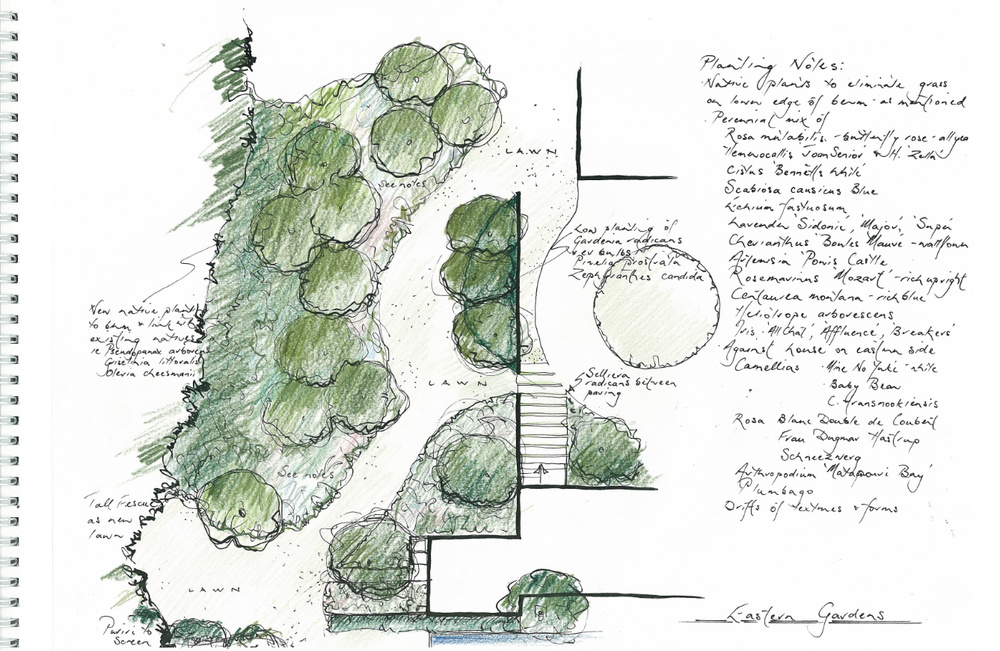 Planting Notes:
Native plants to eliminate grass
on lower edge of berm - as mentioned
Perennial mix of
Rosa mutabilis - butterfly rose - all year
Hemerocallis 'Joan Senior' & 'H. Zella'
Cistus 'Bennetts White'
Scabiosa causicus Blue
Echium fastuosum
Lavender 'Sidonie', 'Major', 'Super'
Cheiranthus 'Bowles Mauve' - wallflower
Artemisia 'Powis Castle'
Rosemarinus 'Mozart' - rich upright
Centaurea montana - rich blue
Heliotrope arborescens
Iris 'All that', 'Affluence', 'Breakers'
Against house on eastern side
Camellias 'Mme No Yuki' - white
'Baby Bear'
C. transnokoensis
Rosa Blanc Double de Coubert
Frau Dagmar Hastrup
Schneezwerg
Arthropodium 'Matapouri Bay'
Plumbago
Drifts of textures & forms
LAWN
See notes
Low planting of
Gardenia radicans
Pimelia prostrata
Zephyranthes candida
New native plants
to berm & link with
existing natives
ie Pseudopanax arboreus
Griselinia littoralis
Olearia cheesmanii
LAWN
Selliera
radicans between
paving
See notes
Tall Fescue
as new
lawn
LAWN
Puriri to
Screen
Eastern Gardens